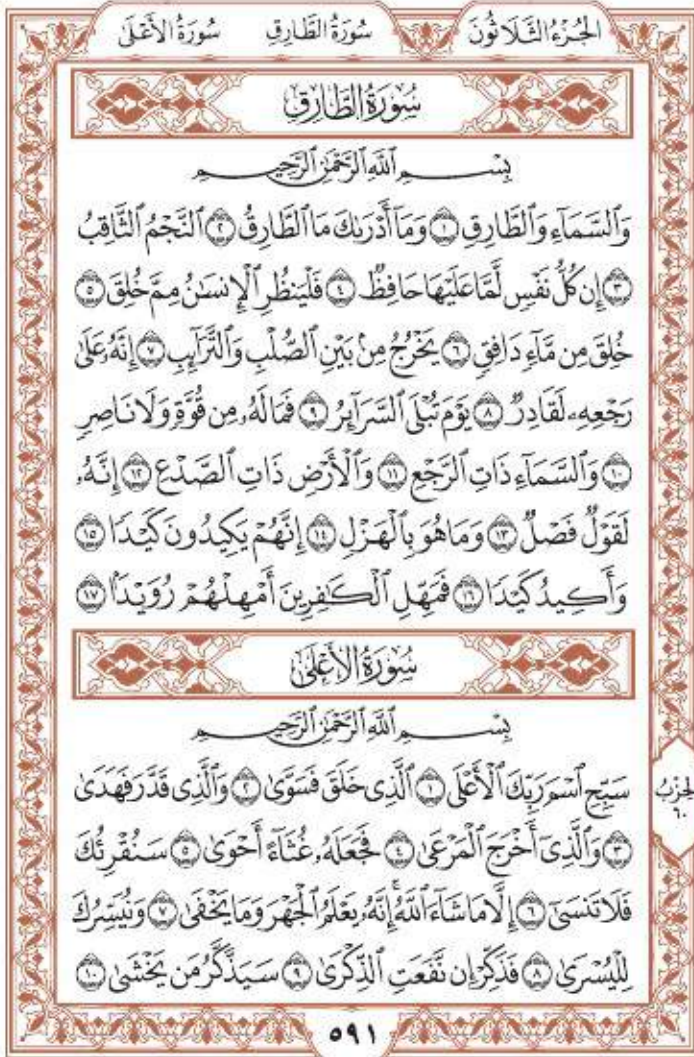 الجُزْءُ الثَّلَاثُونَ سُورَةُ الطَّارِقِ سُورَةُ الأَعْلَى
سُورَةُ الطَّارِقِ
بِسْمِ ٱللَّهِ ٱلرَّحْمَٰنِ ٱلرَّحِيمِ
وَٱلسَّمَآءِ وَٱلطَّارِقِ ١ وَمَآ أَدْرَىٰكَ مَا ٱلطَّارِقُ ٢ ٱلنَّجْمُ ٱلثَّاقِبُ
٣ إِن كُلُّ نَفْسٍ لَّمَّا عَلَيْهَا حَافِظٌ ٤ فَلْيَنظُرِ ٱلْإِنسَٰنُ مِمَّ خُلِقَ ٥
خُلِقَ مِن مَّآءٍ دَافِقٍ ٦ يَخْرُجُ مِنۢ بَيْنِ ٱلصُّلْبِ وَٱلتَّرَآئِبِ ٧ إِنَّهُۥ عَلَىٰ
رَجْعِهِۦ لَقَادِرٌ ٨ يَوْمَ تُبْلَى ٱلسَّرَآئِرُ ٩ فَمَا لَهُۥ مِن قُوَّةٍ وَلَا نَاصِرٍ
١٠ وَٱلسَّمَآءِ ذَاتِ ٱلرَّجْعِ ١١ وَٱلْأَرْضِ ذَاتِ ٱلصَّدْعِ ١٢ إِنَّهُۥ
لَقَوْلٌ فَصْلٌ ١٣ وَمَا هُوَ بِٱلْهَزْلِ ١٤ إِنَّهُمْ يَكِيدُونَ كَيْدًا ١٥
وَأَكِيدُ كَيْدًا ١٦ فَمَهِّلِ ٱلْكَٰفِرِينَ أَمْهِلْهُمْ رُوَيْدًۢا ١٧
سُورَةُ الأَعْلَىٰ
بِسْمِ ٱللَّهِ ٱلرَّحْمَٰنِ ٱلرَّحِيمِ
سَبِّحِ ٱسْمَ رَبِّكَ ٱلْأَعْلَى ١ ٱلَّذِى خَلَقَ فَسَوَّىٰ ٢ وَٱلَّذِى قَدَّرَ فَهَدَىٰ
٣ وَٱلَّذِىٓ أَخْرَجَ ٱلْمَرْعَىٰ ٤ فَجَعَلَهُۥ غُثَآءً أَحْوَىٰ ٥ سَنُقْرِئُكَ
فَلَا تَنسَىٰٓ ٦ إِلَّا مَا شَآءَ ٱللَّهُ ۚ إِنَّهُۥ يَعْلَمُ ٱلْجَهْرَ وَمَا يَخْفَىٰ ٧ وَنُيَسِّرُكَ
لِلْيُسْرَىٰ ٨ فَذَكِّرْ إِن نَّفَعَتِ ٱلذِّكْرَىٰ ٩ سَيَذَّكَّرُ مَن يَخْشَىٰ ١٠
الحِزْبُ
٦٠
٥٩١